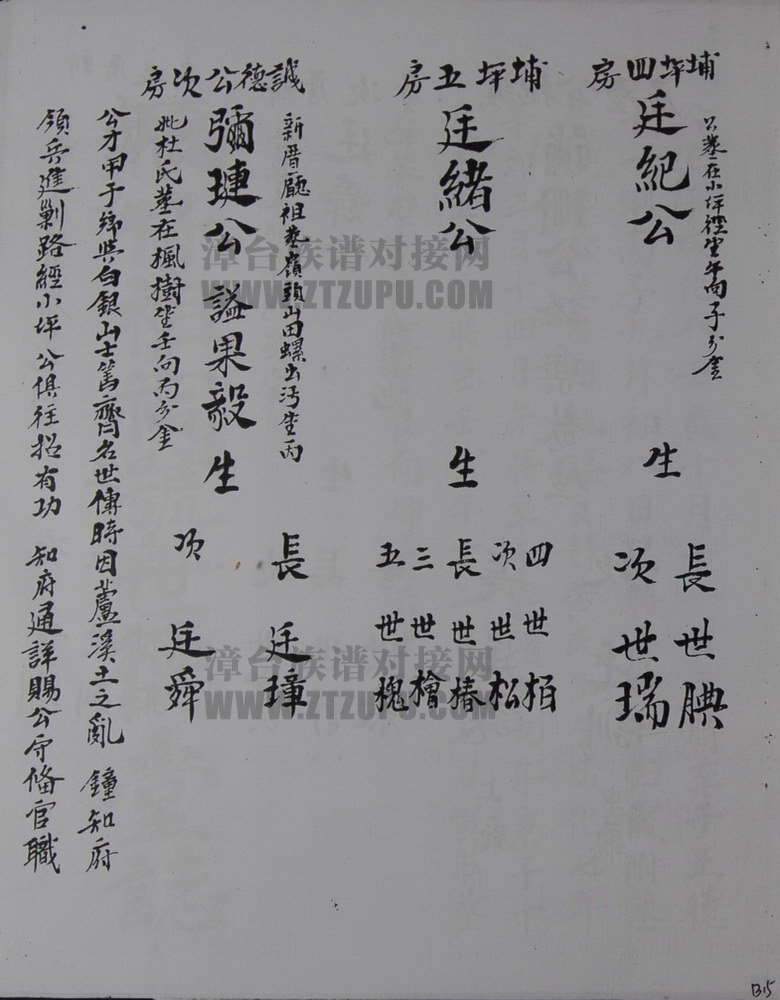 埔坪四房
廷紀公
公墓在小坪徑坐午向子分金
生
長世腆
次世瑞
埔坪五房
廷緒公
生
四世栢
次世松
長世椿
三世檜
五世槐
誠德公次房
新厝廳祖墓嶺頭山田螺出汚坐丙
彌璉公 謚果毅
妣杜氏墓在楓樹坐壬向丙分金
生
長 廷璋
次 廷舜
公才甲子鄉與白銀山士篤齊名世傳時因蘆溪土之亂 鐘知府
領兵進剿路經小坪公俱往招有功 知府通詳賜公守俻官職
漳台族谱对接网
WWW.ZTZUPU.COM
漳台族谱对接网
WWW.ZTZUPU.COM
B15